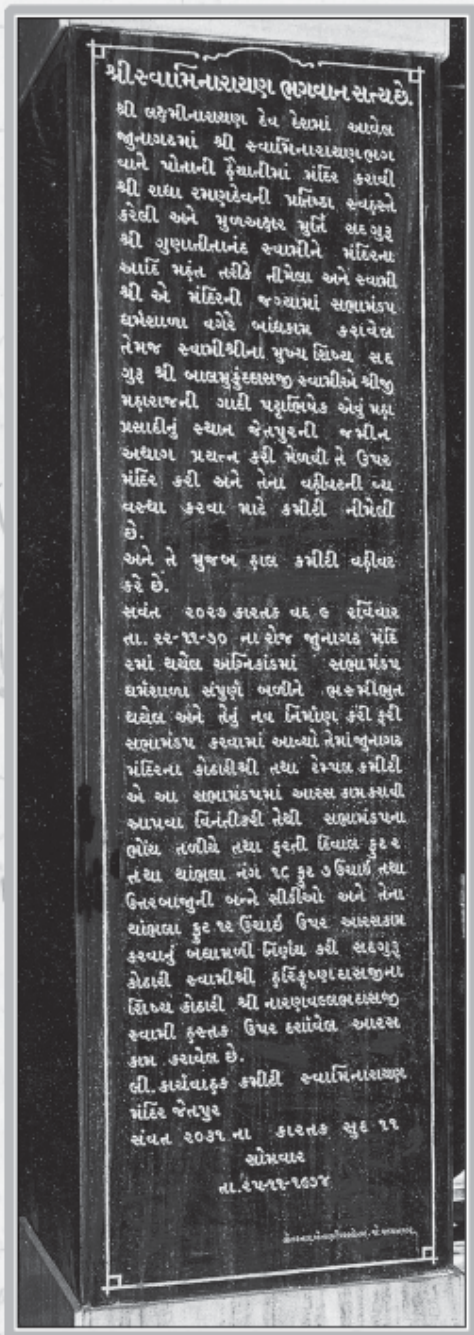 શ્રી સ્વામિનારાયણ ભગવાન સત્ય છે.
શ્રી લક્ષ્મીનારાયણ દેવ દેશમાં આવેલ
જુનાગઢમાં શ્રી સ્વામિનારાયણ ભગ
વાને પોતાની હૈયાતીમાં મંદિર કરાવી
શ્રી રાધા રમણદેવની પ્રતિષ્ઠા સ્વહસ્તે
કરેલી અને મુળઅક્ષર મુર્તિ સદગુરૂ
શ્રી ગુણાતીતાનંદ સ્વામીને મંદિરના
આદિ મહંત તરીકે નીમેલા અને સ્વામી
શ્રી એ મંદિરની જગ્યામાં સભામંડપ
ધર્મશાળા વગેરે બાંધકામ કરાવેલ
તેમજ સ્વામીશ્રીના મુખ્ય શિષ્ય સદ
ગુરૂ શ્રી બાલમુકુંદદાસજી સ્વામીએ શ્રીજી
મહારાજની ગાદી પટ્ટાભિષેક એવું મહા
પ્રસાદીનું સ્થાન જેતપુરની જમીન
અથાગ પ્રયત્ન કરી મેળવી તે ઉપર
મંદિર કરી અને તેના વહીવટની વ્ય
વસ્થા કરવા માટે કમીટી નીમેલી
છે.
અને તે મુજબ હાલ કમીટી વહીવટ
કરે છે.
સવંત ૨૦૨૭ કારતક વદ ૯ રવિવાર
તા. ૨૨-૧૧-૭૦ ના રોજ જુનાગઢ મંદિ
રમાં થયેલ અગ્નિકાંડમાં સભામંડપ
ધર્મશાળા સંપુર્ણ બળીને ભસ્મીભુત
થયેલ અને તેનું નવ નિર્માણ કરી ફરી
સભામંડપ કરવામાં આવ્યો તેમાં જુનાગઢ
મંદિરના કોઠારીશ્રી તથા ટેમ્પલ કમીટી
એ આ સભામંડપમાં આરસ કામ કરાવી
આપવા વિનંતીકરી તેથી સભામંડપના
ભોંય તળીયે તથા ફરતી દિવાલ ફુટ ૨
તથા થાંભલા નંગ ૧૮ ફુટ ૭ ઉંચાઇ તથા
ઉત્તરબાજુની બન્ને સીડીઓ અને તેના
થાંભલા ફુટ ૧૨ ઉંચાઇ ઉપર આરસકામ
કરવાનું બધામળી નિર્ણય કરી સદગુરૂ
કોઠારી સ્વામીશ્રી હરિકૃષ્ણદાસજીના
શિષ્ય કોઠારી શ્રી નારણવલ્લભદાસજી
સ્વામી હસ્તક ઉપર દર્શાવેલ આરસ
કામ કરાવેલ છે.
લી. કાર્યવાહક કમીટી સ્વામિનારાયણ
મંદિર જેતપુર
સંવત ૨૦૩૧ ના કારતક સુદ ૧૧
સોમવાર
તા.૨૫-૧૧-૧૯૭૪